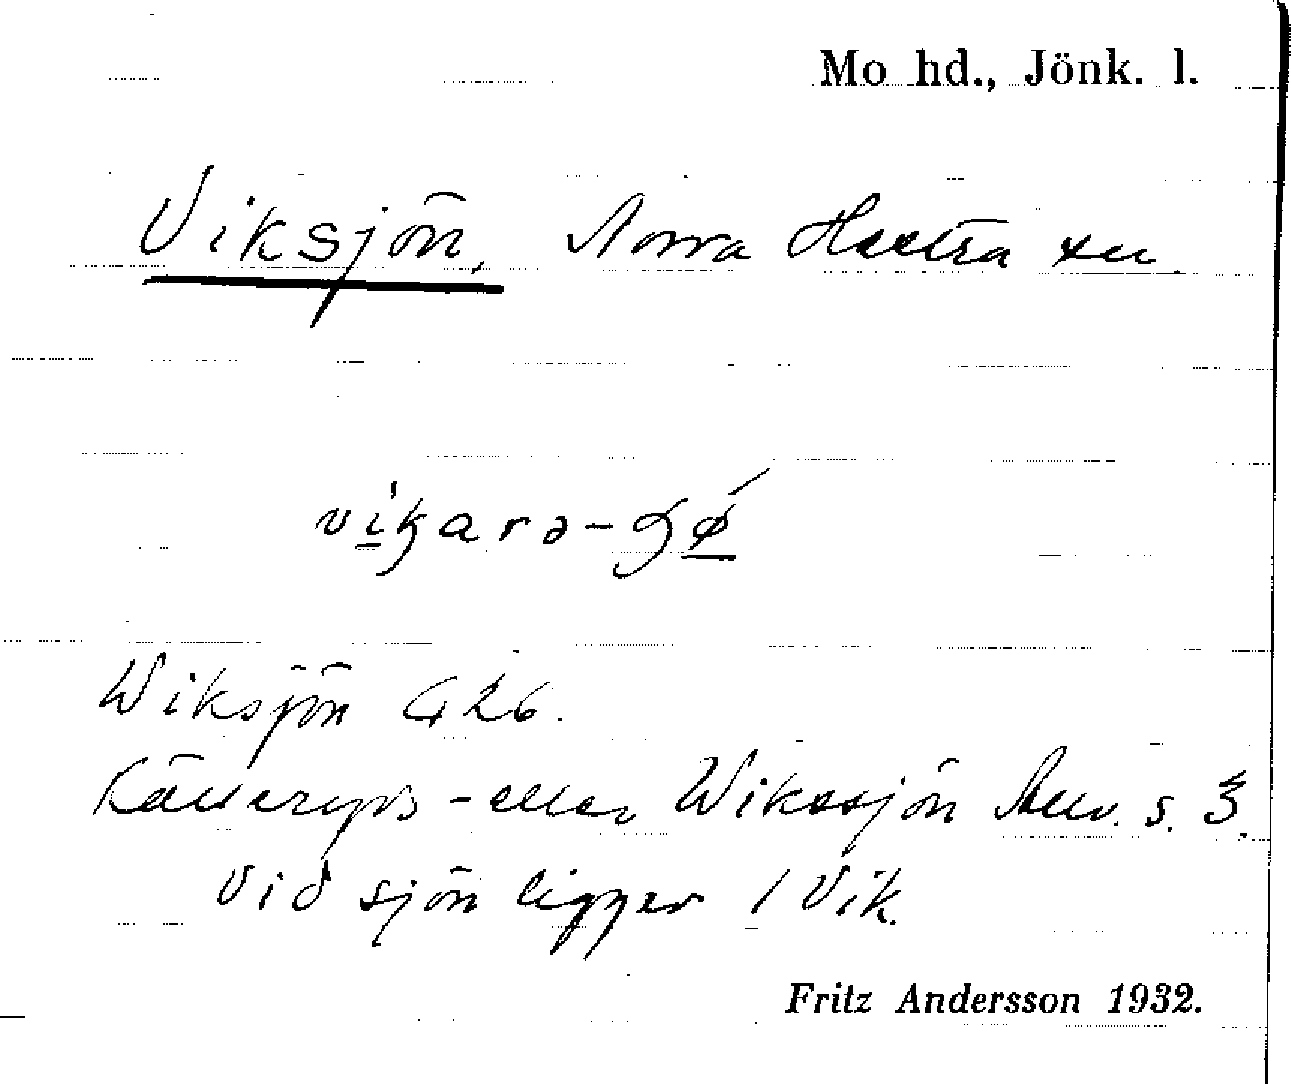 Mo hd., Jönk. l.
Viksjön, Norra Hestra sn.
Wiksjön G 26.
Källeryds- eller Wikesjön Allv. s. 3.
Vid sjön ligger / Vik.
Fritz Andersson 1932.